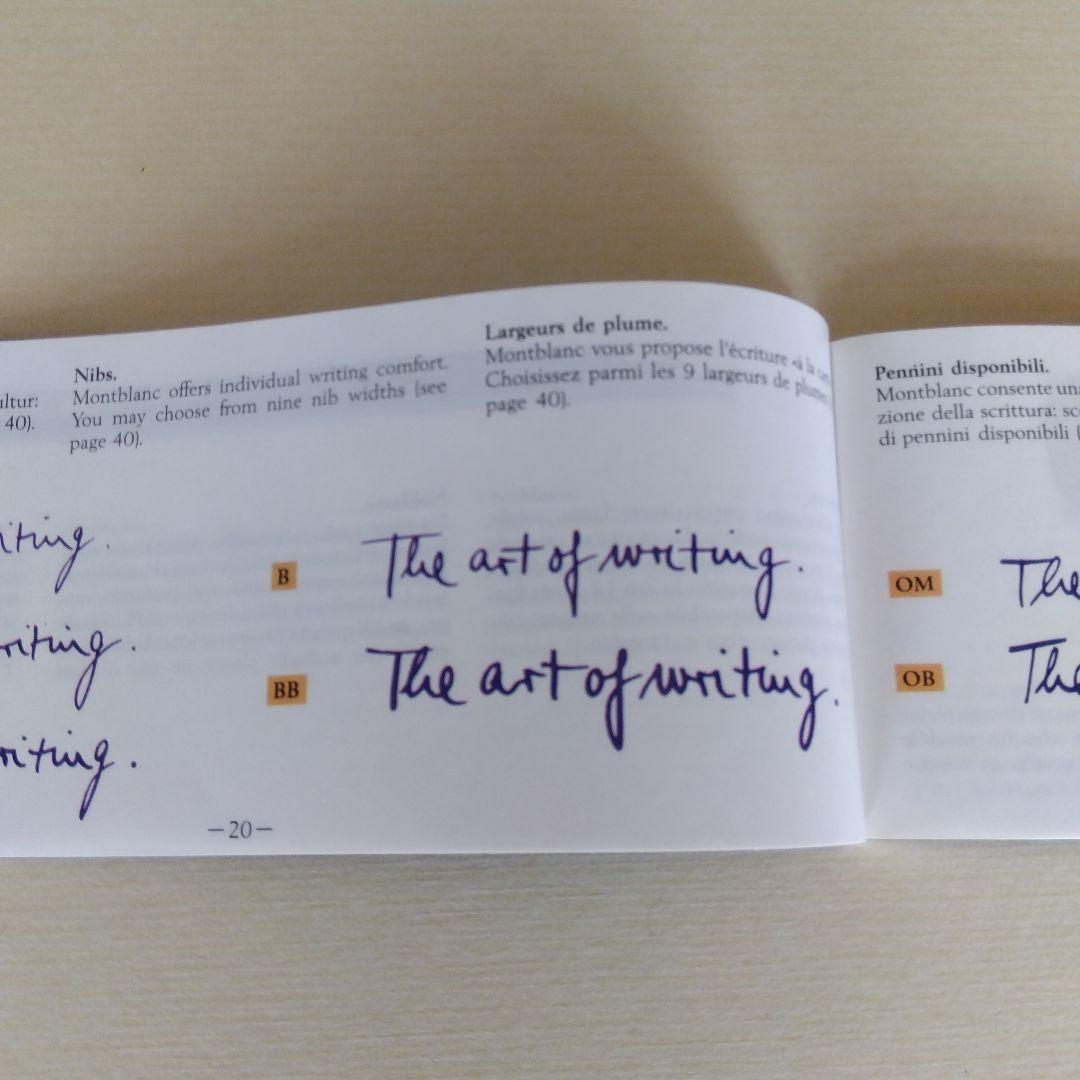 ultur:
40).
Nibs.
Montblanc offers individual writing comfort.
You may choose from nine nib widths (see
page 40).
Largeurs de plume.
Montblanc vous propose l'écriture «à la
Choisissez parmi les 9 largeurs de plume
page 40).
Pennini disponibili.
Montblanc consente una
zione della scrittura:
di pennini disponibili (
iting.
riting.
riting.
B
The art of writing.
BB
The art of writing.
OM
The
OB
The
—20—